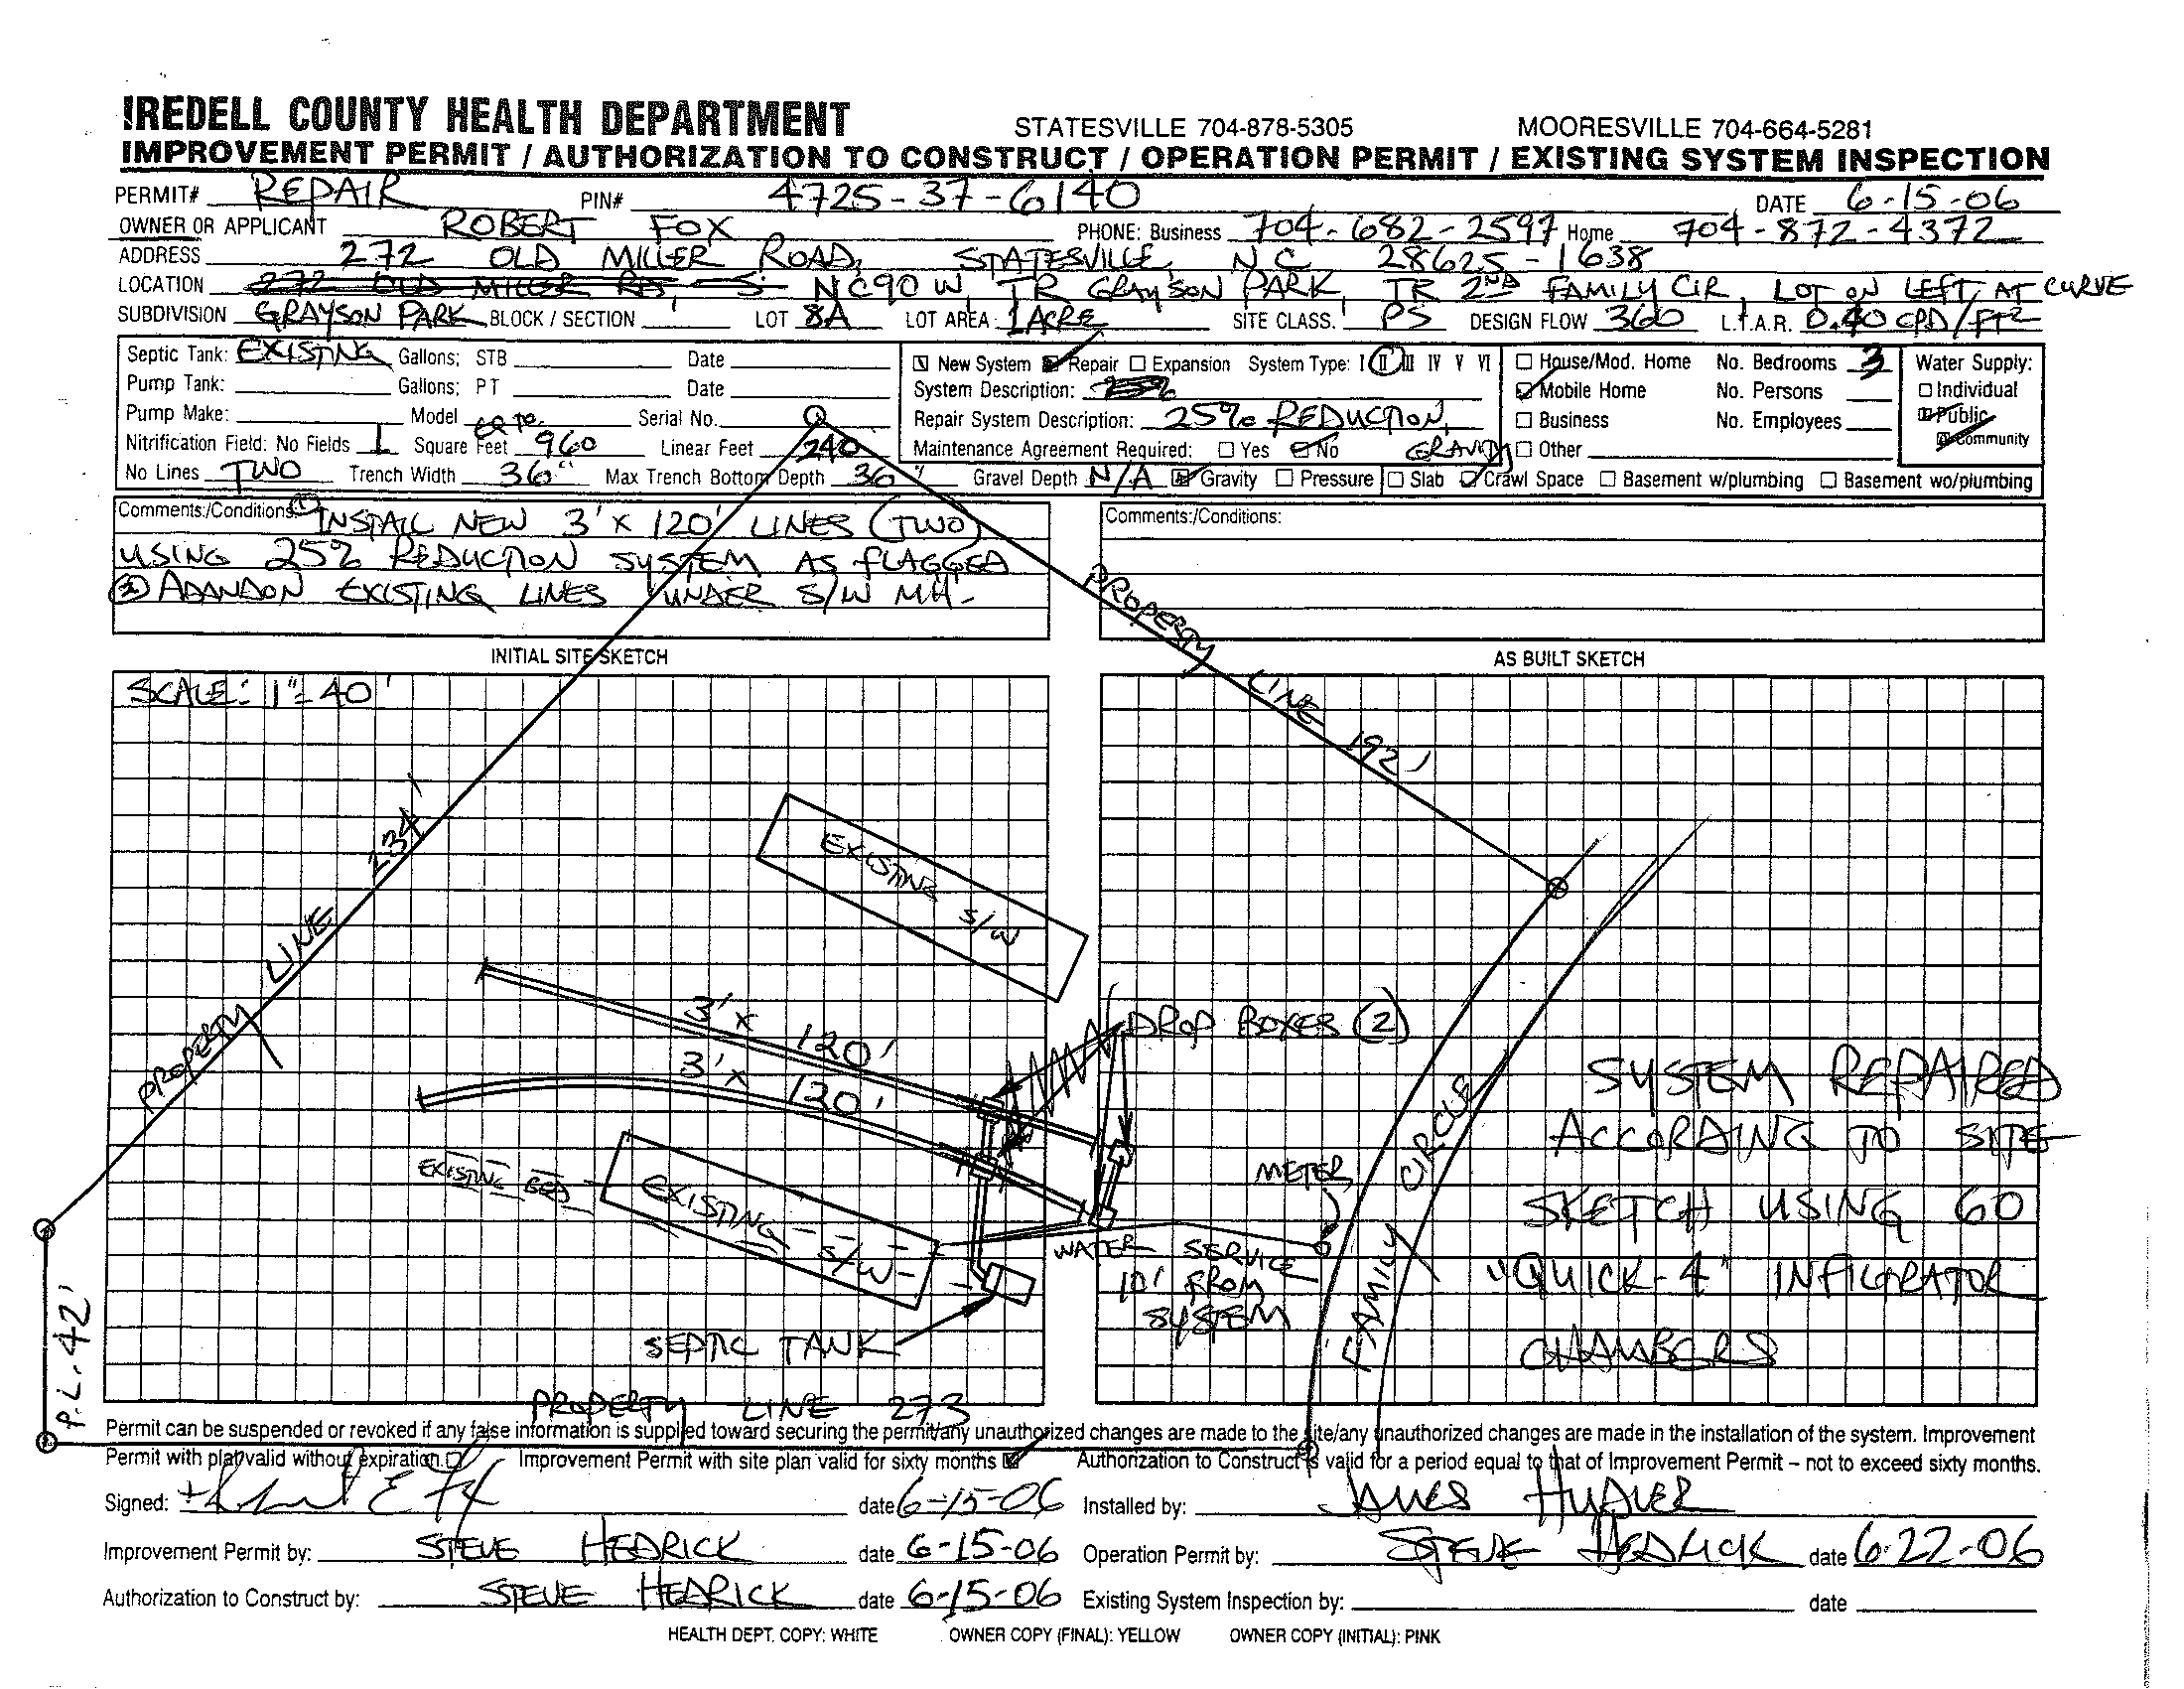 IREDELL COUNTY HEALTH DEPARTMENT STATESVILLE 704-878-5305 MOORESVILLE 704-664-5281
IMPROVEMENT PERMIT / AUTHORIZATION TO CONSTRUCT / OPERATION PERMIT / EXISTING SYSTEM INSPECTION
PERMIT# REPAIR PIN# 4725-37-6140 DATE 6-15-06
OWNER OR APPLICANT ROBERT FOX PHONE: Business 704-682-2597 Home 704-872-4372
ADDRESS 272 OLD MILLER ROAD, STATESVILLE, NC 28625-1638
LOCATION 272 OLD MILLER RD, NC 90 W, TR GRAYSON PARK, TR 2ND FAMILY CIR, LOT ON LEFT AT CURVE
SUBDIVISION GRAYSON PARK BLOCK / SECTION LOT 8A LOT AREA 1 ACRE SITE CLASS. PS DESIGN FLOW 360 L.T.A.R. 0.40 GPD/FT2
Septic Tank: EXISTING Gallons; STB Date
Pump Tank: Gallons; PT Date
Pump Make: Model Serial No.
Nitrification Field: No Fields 1 Square Feet EQ TO. 960 Linear Feet 240
No Lines TWO Trench Width 36" Max Trench Bottom Depth 36" Gravel Depth N/A Gravity Pressure Slab Crawl Space Basement w/plumbing Basement wo/plumbing
New System Repair Expansion System Type: I II III IV V VI
System Description: 25%
Repair System Description: 25% REDUCTION,
Maintenance Agreement Required: Yes No GRAVITY
House/Mod. Home No. Bedrooms 3
Mobile Home No. Persons
Business No. Employees
Other
Water Supply:
Individual
Public
Community
Comments:/Conditions: 1 INSTALL NEW 3' X 120' LINES (TWO)
USING 25% REDUCTION SYSTEM AS FLAGGED
2 ABANDON EXISTING LINES UNDER S/W MH-
Comments:/Conditions:
INITIAL SITE SKETCH
AS BUILT SKETCH
SCALE: 1"=40'
PROPERTY LINE 234'
PROPERTY LINE 192'
EXISTING S/W
3' X 120'
3' X 120'
DROP BOXES (2)
EXISTING BED
EXISTING S/W
METER
WATER SERVICE
10' FROM
SYSTEM
FAMILY CIRCLE
SEPTIC TANK
P.L. 42'
PROPERTY LINE 273
SYSTEM REPAIRED
ACCORDING TO SITE
SKETCH USING 60
"QUICK-4" INFILTRATOR
CHAMBERS
Permit can be suspended or revoked if any false information is supplied toward securing the permit/any unauthorized changes are made to the site/any unauthorized changes are made in the installation of the system. Improvement
Permit with plat valid without expiration. Improvement Permit with site plan valid for sixty months Authorization to Construct is valid for a period equal to that of Improvement Permit – not to exceed sixty months.
Signed: date 6-15-06 Installed by: JAMES
Improvement Permit by: STEVE HEDRICK date 6-15-06 Operation Permit by: STEVE HEDRICK date 6-22-06
Authorization to Construct by: STEVE HEDRICK date 6-15-06 Existing System Inspection by: date
HEALTH DEPT. COPY: WHITE OWNER COPY (FINAL): YELLOW OWNER COPY (INITIAL): PINK